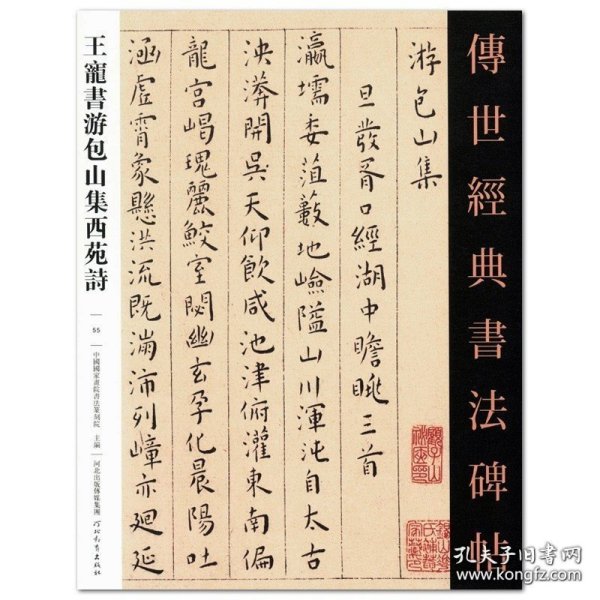 傳世經典書法碑帖
游包山集
旦發胥口經湖中瞻眺三首
瀛壖委菹藪地嶮隘山川渾沌自太古
泱漭開吳天仰飲咸池津俯灌東南偏
龍宮嵑瑰麗鮫室閟幽玄孕化晨陽吐
涵虛霄象懸洪流既滿沛列嶂亦廻延
王寵書游包山集西苑詩
55
中國國家畫院書法篆刻院 主編
河北出版傳媒集團
河北教育出版社
孔夫子旧书网
www.kongfz.com